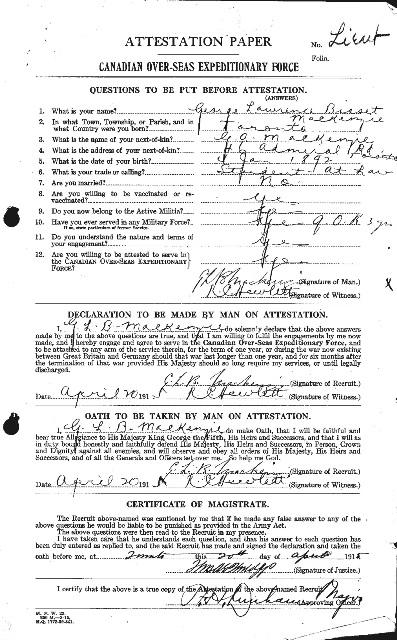 ATTESTATION PAPER
No. Lieut
Folio.
CANADIAN OVER-SEAS EXPEDITIONARY FORCE
QUESTIONS TO BE PUT BEFORE ATTESTATION.
(ANSWERS)
1. What is your name? George Lawrence Bisset Mackenzie
2. In what Town, Township, or Parish, and in what Country were you born? Toronto
3. What is the name of your next-of-kin? G. A. Mackenzie
4. What is the address of your next-of-kin? Admiral Rd Toronto
5. What is the date of your birth? Jan 1892
6. What is your trade or calling? Student At Law
7. Are you married? No
8. Are you willing to be vaccinated or re-vaccinated? Yes
9. Do you now belong to the Active Militia? Yes
10. Have you ever served in any Military Force? Yes Q.O.R 3 yrs
If so, state particulars of former Service.
11. Do you understand the nature and terms of your engagement? Yes
12. Are you willing to be attested to serve in the CANADIAN OVER-SEAS EXPEDITIONARY FORCE? Yes
G L B Mackenzie (Signature of Man.)
Hewlett (Signature of Witness.)
DECLARATION TO BE MADE BY MAN ON ATTESTATION.
I, G. L. B. Mackenzie do solemnly declare that the above answers
made by me to the above questions are true, and that I am willing to fulfil the engagements by me now
made, and I hereby engage and agree to serve in the Canadian Over-Seas Expeditionary Force, and
to be attached to any arm of the service therein, for the term of one year, or during the war now existing
between Great Britain and Germany should that war last longer than one year, and for six months after
the termination of that war provided His Majesty should so long require my services, or until legally
discharged.
G L B Mackenzie (Signature of Recruit.)
Date April 20 191 Hewlett (Signature of Witness)
OATH TO BE TAKEN BY MAN ON ATTESTATION.
I, G. L. B. Mackenzie do make Oath, that I will be faithful and
bear true Allegiance to His Majesty King George the Fifth, His Heirs and Successors, and that I will as
in duty bound honestly and faithfully defend His Majesty, His Heirs and Successors, in Person, Crown
and Dignity against all enemies, and will observe and obey all orders of His Majesty, His Heirs and
Successors, and of all the Generals and Officers set over me. So help me God.
G L B Mackenzie (Signature of Recruit.)
Date April 20 191 Hewlett (Signature of Witness)
CERTIFICATE OF MAGISTRATE.
The Recruit above-named was cautioned by me that if he made any false answer to any of the
above questions he would be liable to be punished as provided in the Army Act.
The above questions were then read to the Recruit in my presence.
I have taken care that he understands each question, and that his answer to each question has
been duly entered as replied to, and the said Recruit has made and signed the declaration and taken the
oath before me, at Toronto this 20th day of April 1915
(Signature of Justice.)
I certify that the above is a true copy of the Attestation of the above-named Recruit
Major
(Approving Officer)
M. F. W. 23.